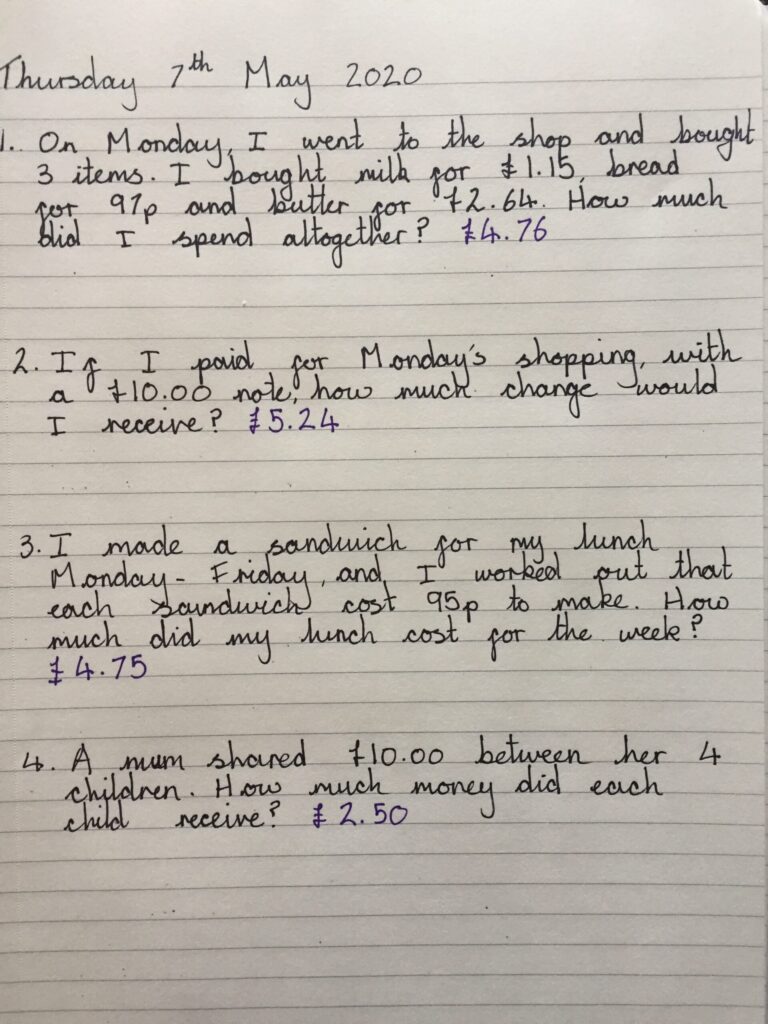 Thursday 7th May 2020
1. On Monday, I went to the shop and bought
3 items. I bought milk for £1.15, bread
for 97p and butter for £2.64. How much
did I spend altogether? £4.76
2. If I paid for Monday's shopping, with
a £10.00 note, how much change would
I receive? £5.24
3. I made a sandwich for my lunch
Monday - Friday, and I worked out that
each sandwich cost 95p to make. How
much did my lunch cost for the week?
£4.75
4. A mum shared £10.00 between her 4
children. How much money did each
child receive? £2.50